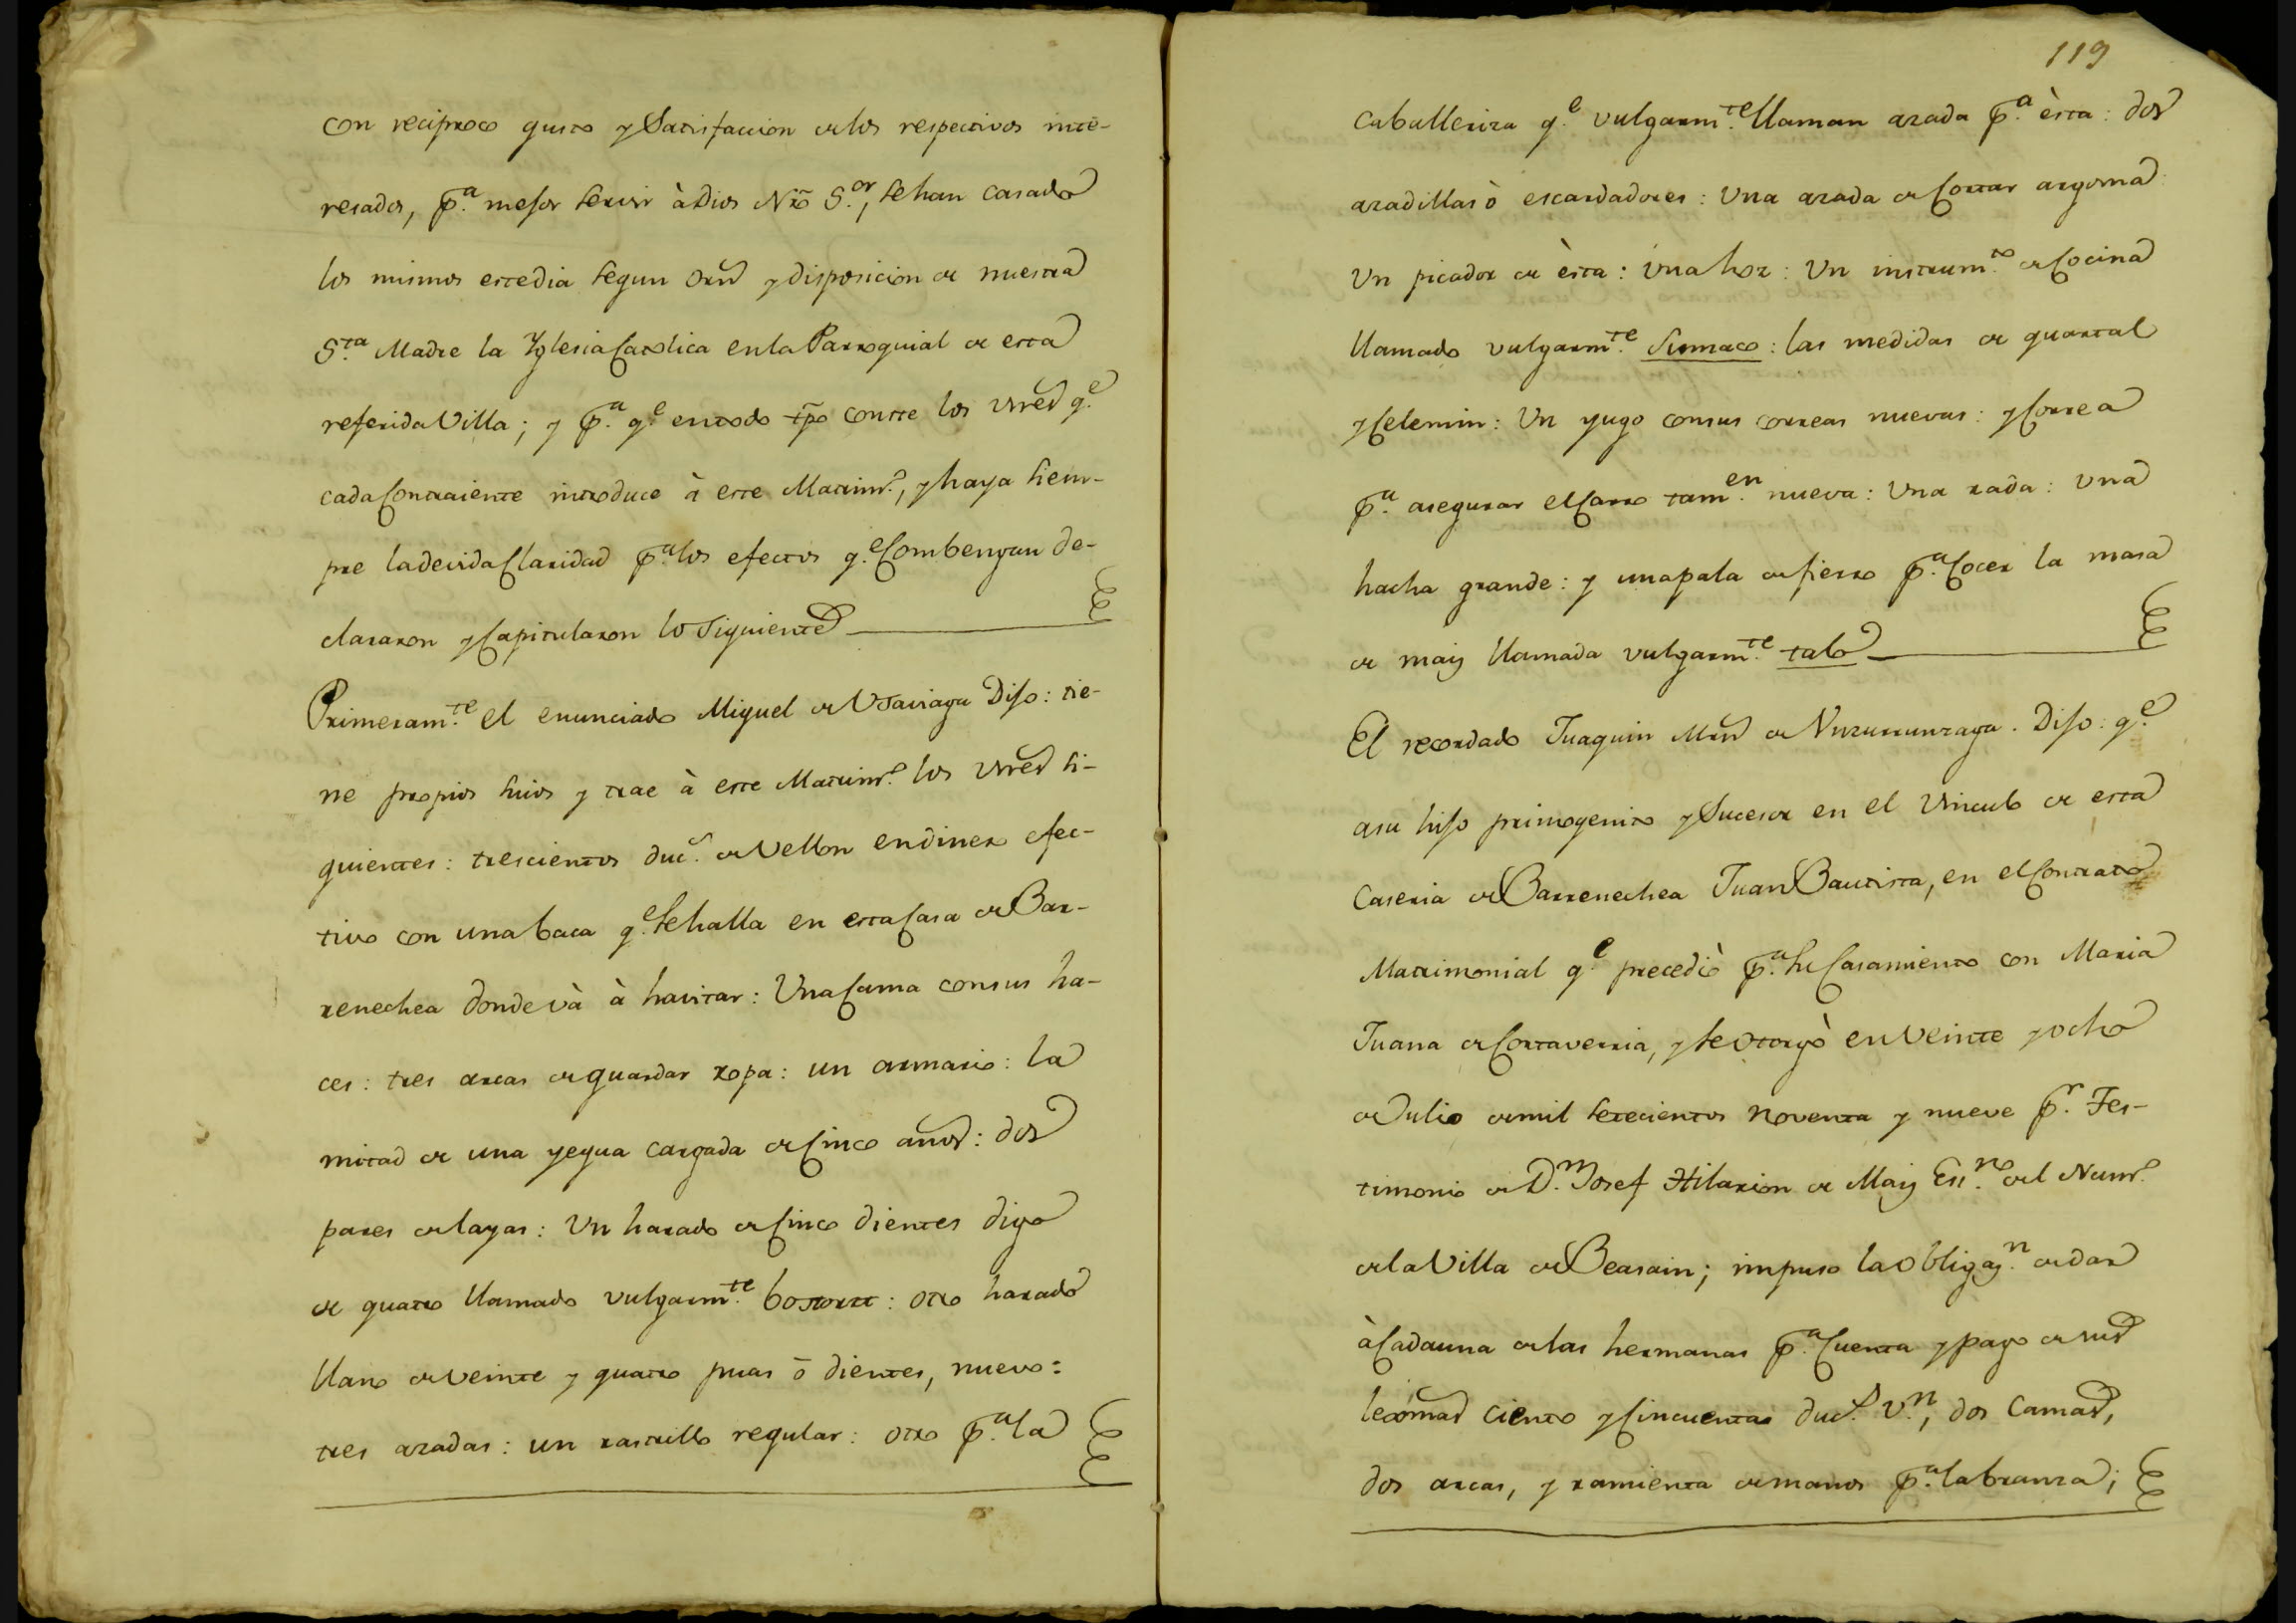 con reciproco gusto y Satisfaccion de los respectivos inte-
resados, p.ª mejor servir à Dios Nrô S.or, se han casado
los mismos este dia segun Orñ y disposicion de nuestra
S.ta Madre la Yglesia Catolica en la Parroquial de esta
referida Villa; y p.ª q.e en todo tp̃o conste los vnês q.e
cada Contraiente introduce à este Matrim.o, y haya siem-
pre la devida Claridad p.ª los efectos q.e Combengan de-
clararon y Capitularon lo Siguiente
Primeram.te el enunciado Miguel de Dijo: tie-
ne propios suios y trae à este Matrim.o los vnês si-
guientes: trescientos duc.s de Vellon en dinero efec-
tivo con una baca q.e se halla en esta Casa de Bar-
renechea donde và à havitar: Una Cama con sus ha-
ces: tres arcas de guardar ropa: un armario: la
mitad de una yegua cargada de Cinco años: dos
pares de layas: Un harado de Cinco dientes digo
de quatro llamado vulgarm.te bostortz: otro harado
llano de veinte y quatro puas ō dientes, nuevo:
tres azadas: un rastrillo regular: otro p.ª la
119
Caballeriza q.e vulgarm.te llaman azada p.ª èsta: dos
azadillas ò escardadores: Una azada de Cortar argoma:
Un picador de èsta: una hoz: Un instrum.to de Cocina
llamado vulgarm.te Sumaco: las medidas de quartal
y Celemin: Un yugo con sus correas nuevas: y Correa
p.ª asegurar el Carro tam.en nueva: Una rada: una
hacha grande: y una pala de fierro p.ª Cocer la masa
de maiz llamada vulgarm.te talo
El recordado Juaquin Mrñ de . Dijo: q.e
a su hijo primogenito y Sucesor en el Vinculo de esta
Caseria de Barrenechea Juan Bautista, en el Contrato
Matrimonial q.e precediò p.ª su Casamiento con Maria
Juana de Cortaverria, y se Otorgò en Veinte y ocho
de Julio de mil setecientos noventa y nueve p.r Tes-
timonio de D.n Josef Hilarion de Maiz Esno del Num.o
de la Villa de Beasain; impuso la Obligaz.n de dar
à Cada una de las hermanas p.ª Cuenta y pago de sus
lexõmas ciento y Cincuenta duc.s V.n, dos Camas,
dos arcas, y ramienta de manos p.ª labranza;